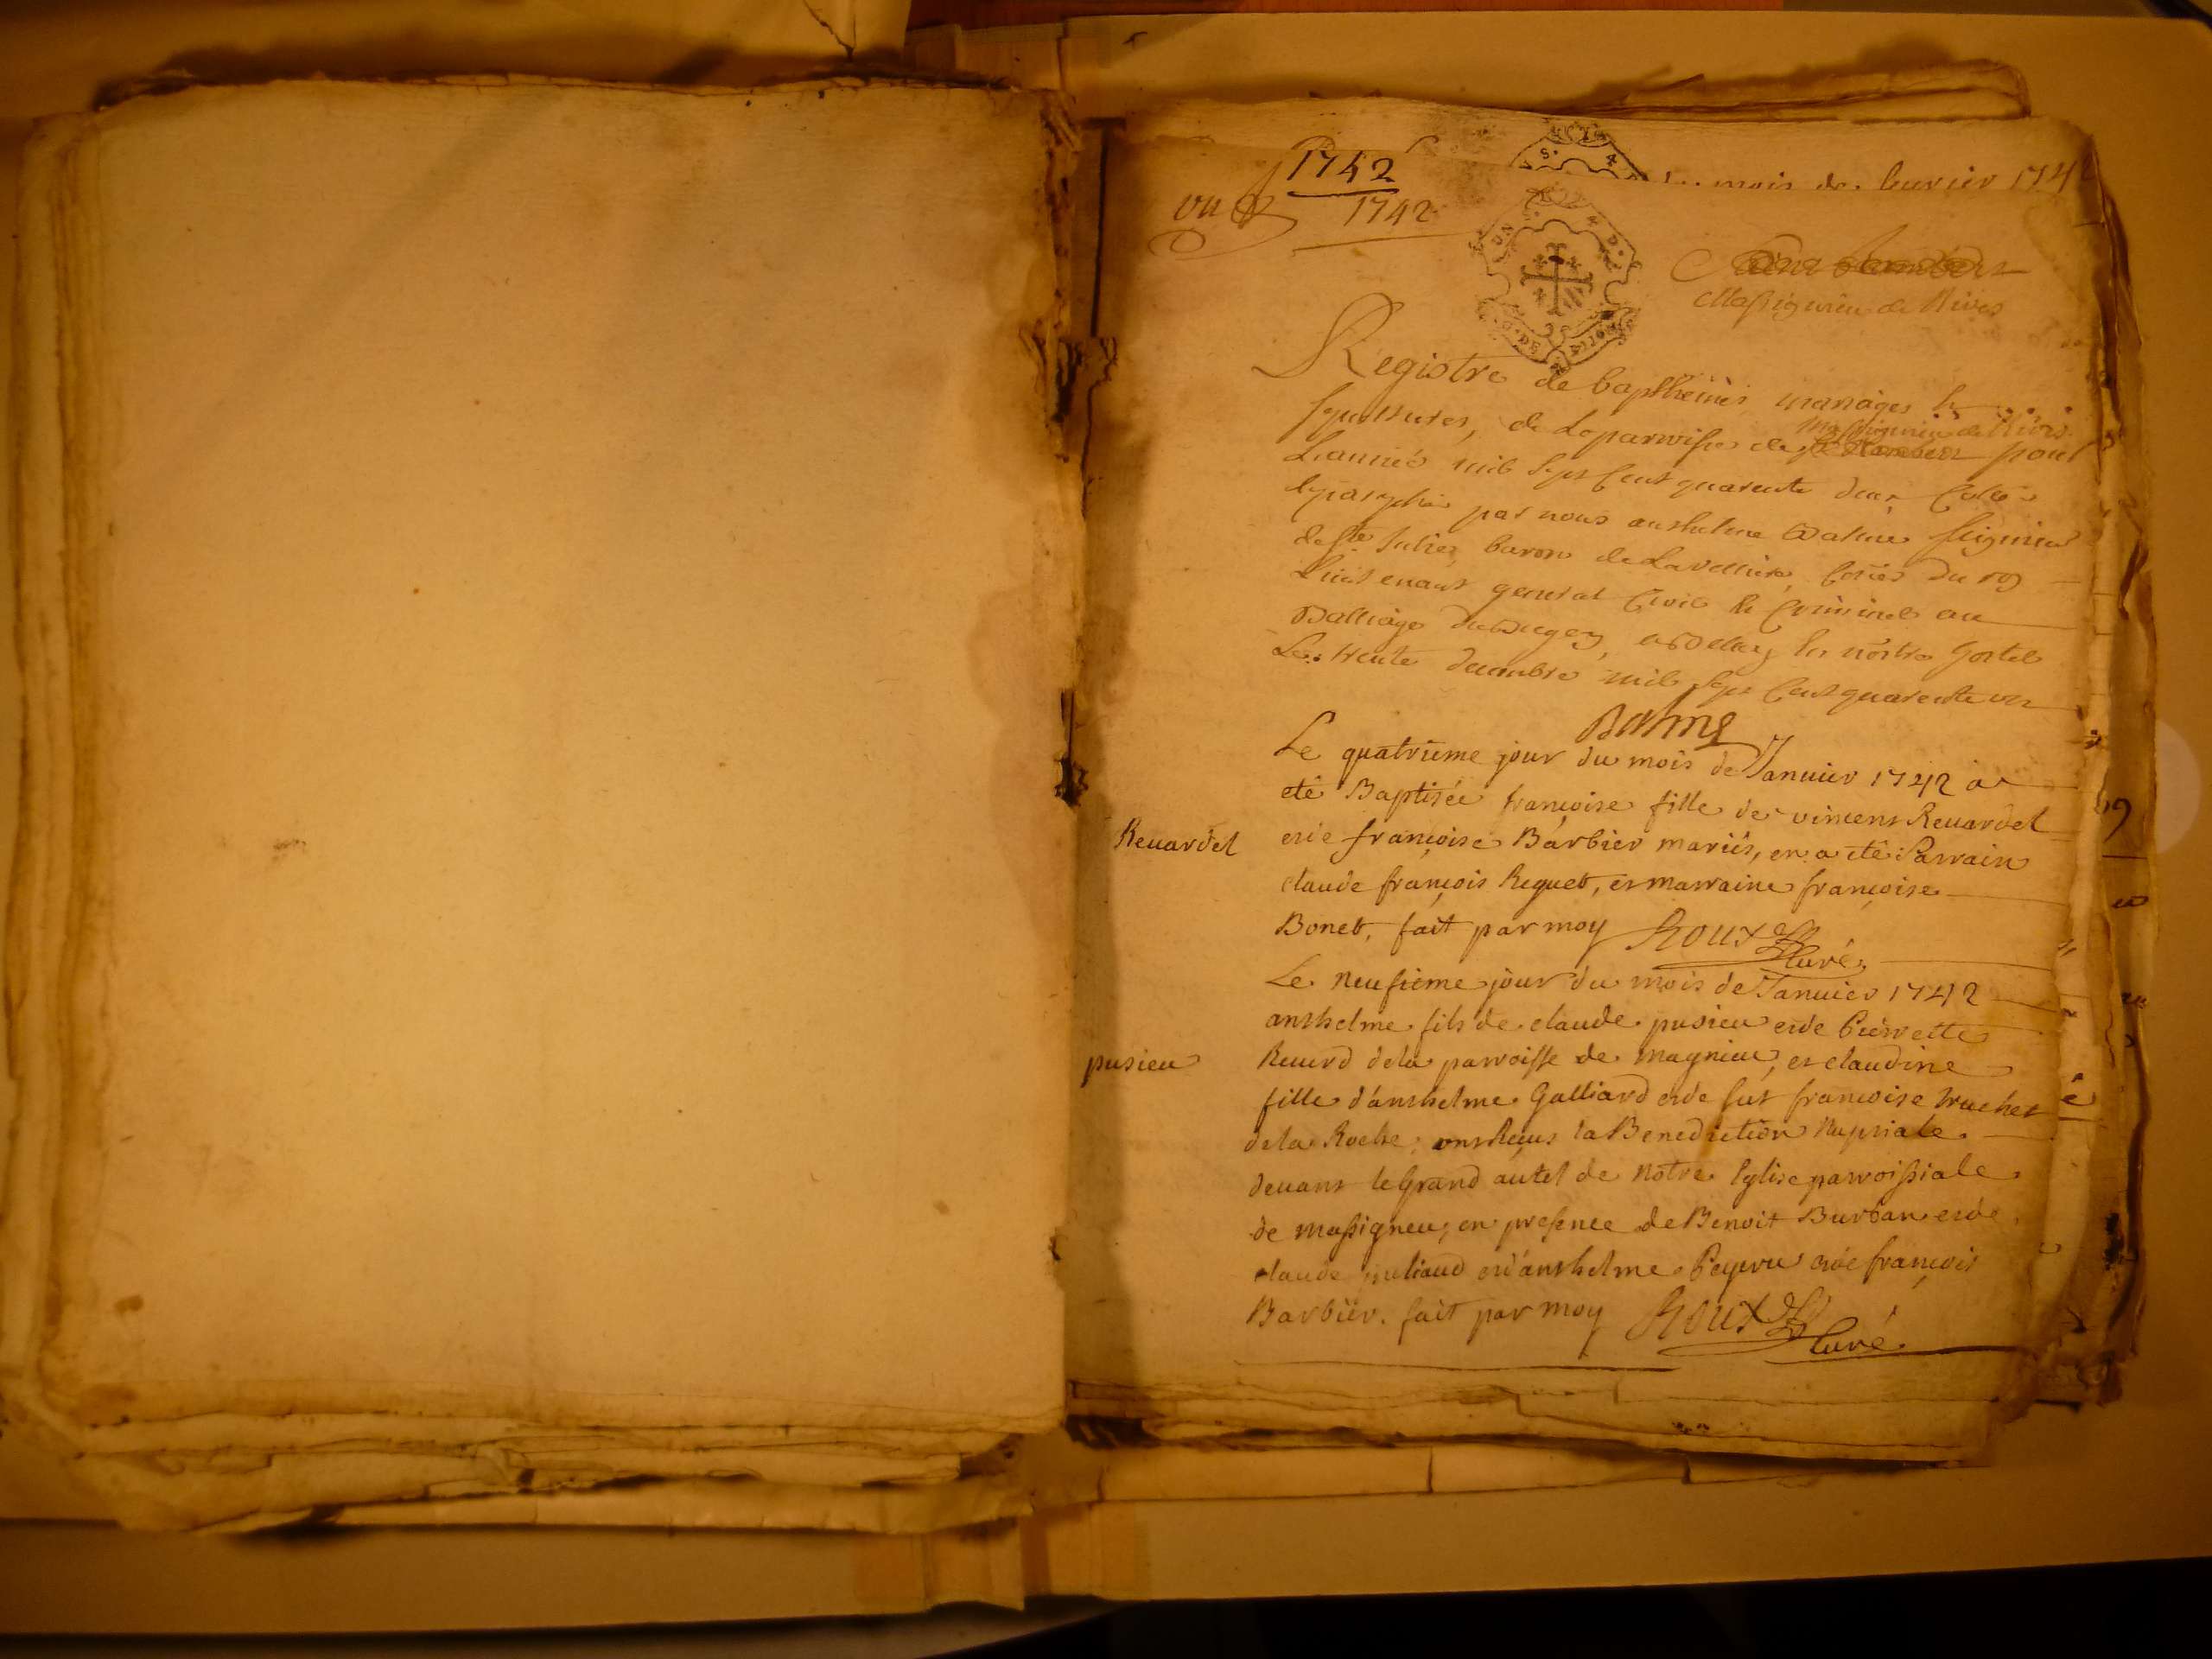 1742
mois de feurier 174
vu
1742
Massigneu de Rives
Registre de baptheme mariages et
sepultures, de la parroisse de Massigneu de Rives pour
L'année mil sept cent quarente deux Cotté
et paraphé par nous anthelme Balme seigneur
de Ste Julie, baron de Lavelliere, coner du roy
Lieutenant general Civil et Criminel au
Balliage du Bugey, a Belley en nostre hostel
Le trente decembre mil sept cent quarente un
Balme
Le quatrieme jour du mois de Januier 1742 a
eté Baptisée francoise fille de vincent Reuardel
Reuardel
et de françoise Barbier mariés, en a eté Parrain
claude françois Reguet, et marraine françoise
Bonet, fait par moy Roux Curé
Le neufieme jour du mois de Januier 1742
anthelme fils de claude pusieu et de Pierrette
pusieu
Reuerd de la parroisse de magnieu, et claudine
fille d'anthelme Galliard et de fut francoise truchet
de la Roche, ont Reçus la Benediction Nuptiale
deuant le Grand autel de Notre Eglise parroissiale
de massigneu, en presence de Benoit Burban et de
claude juliand et d'anthelme Peyvru et de françois
Barbier. fait par moy Roux Curé